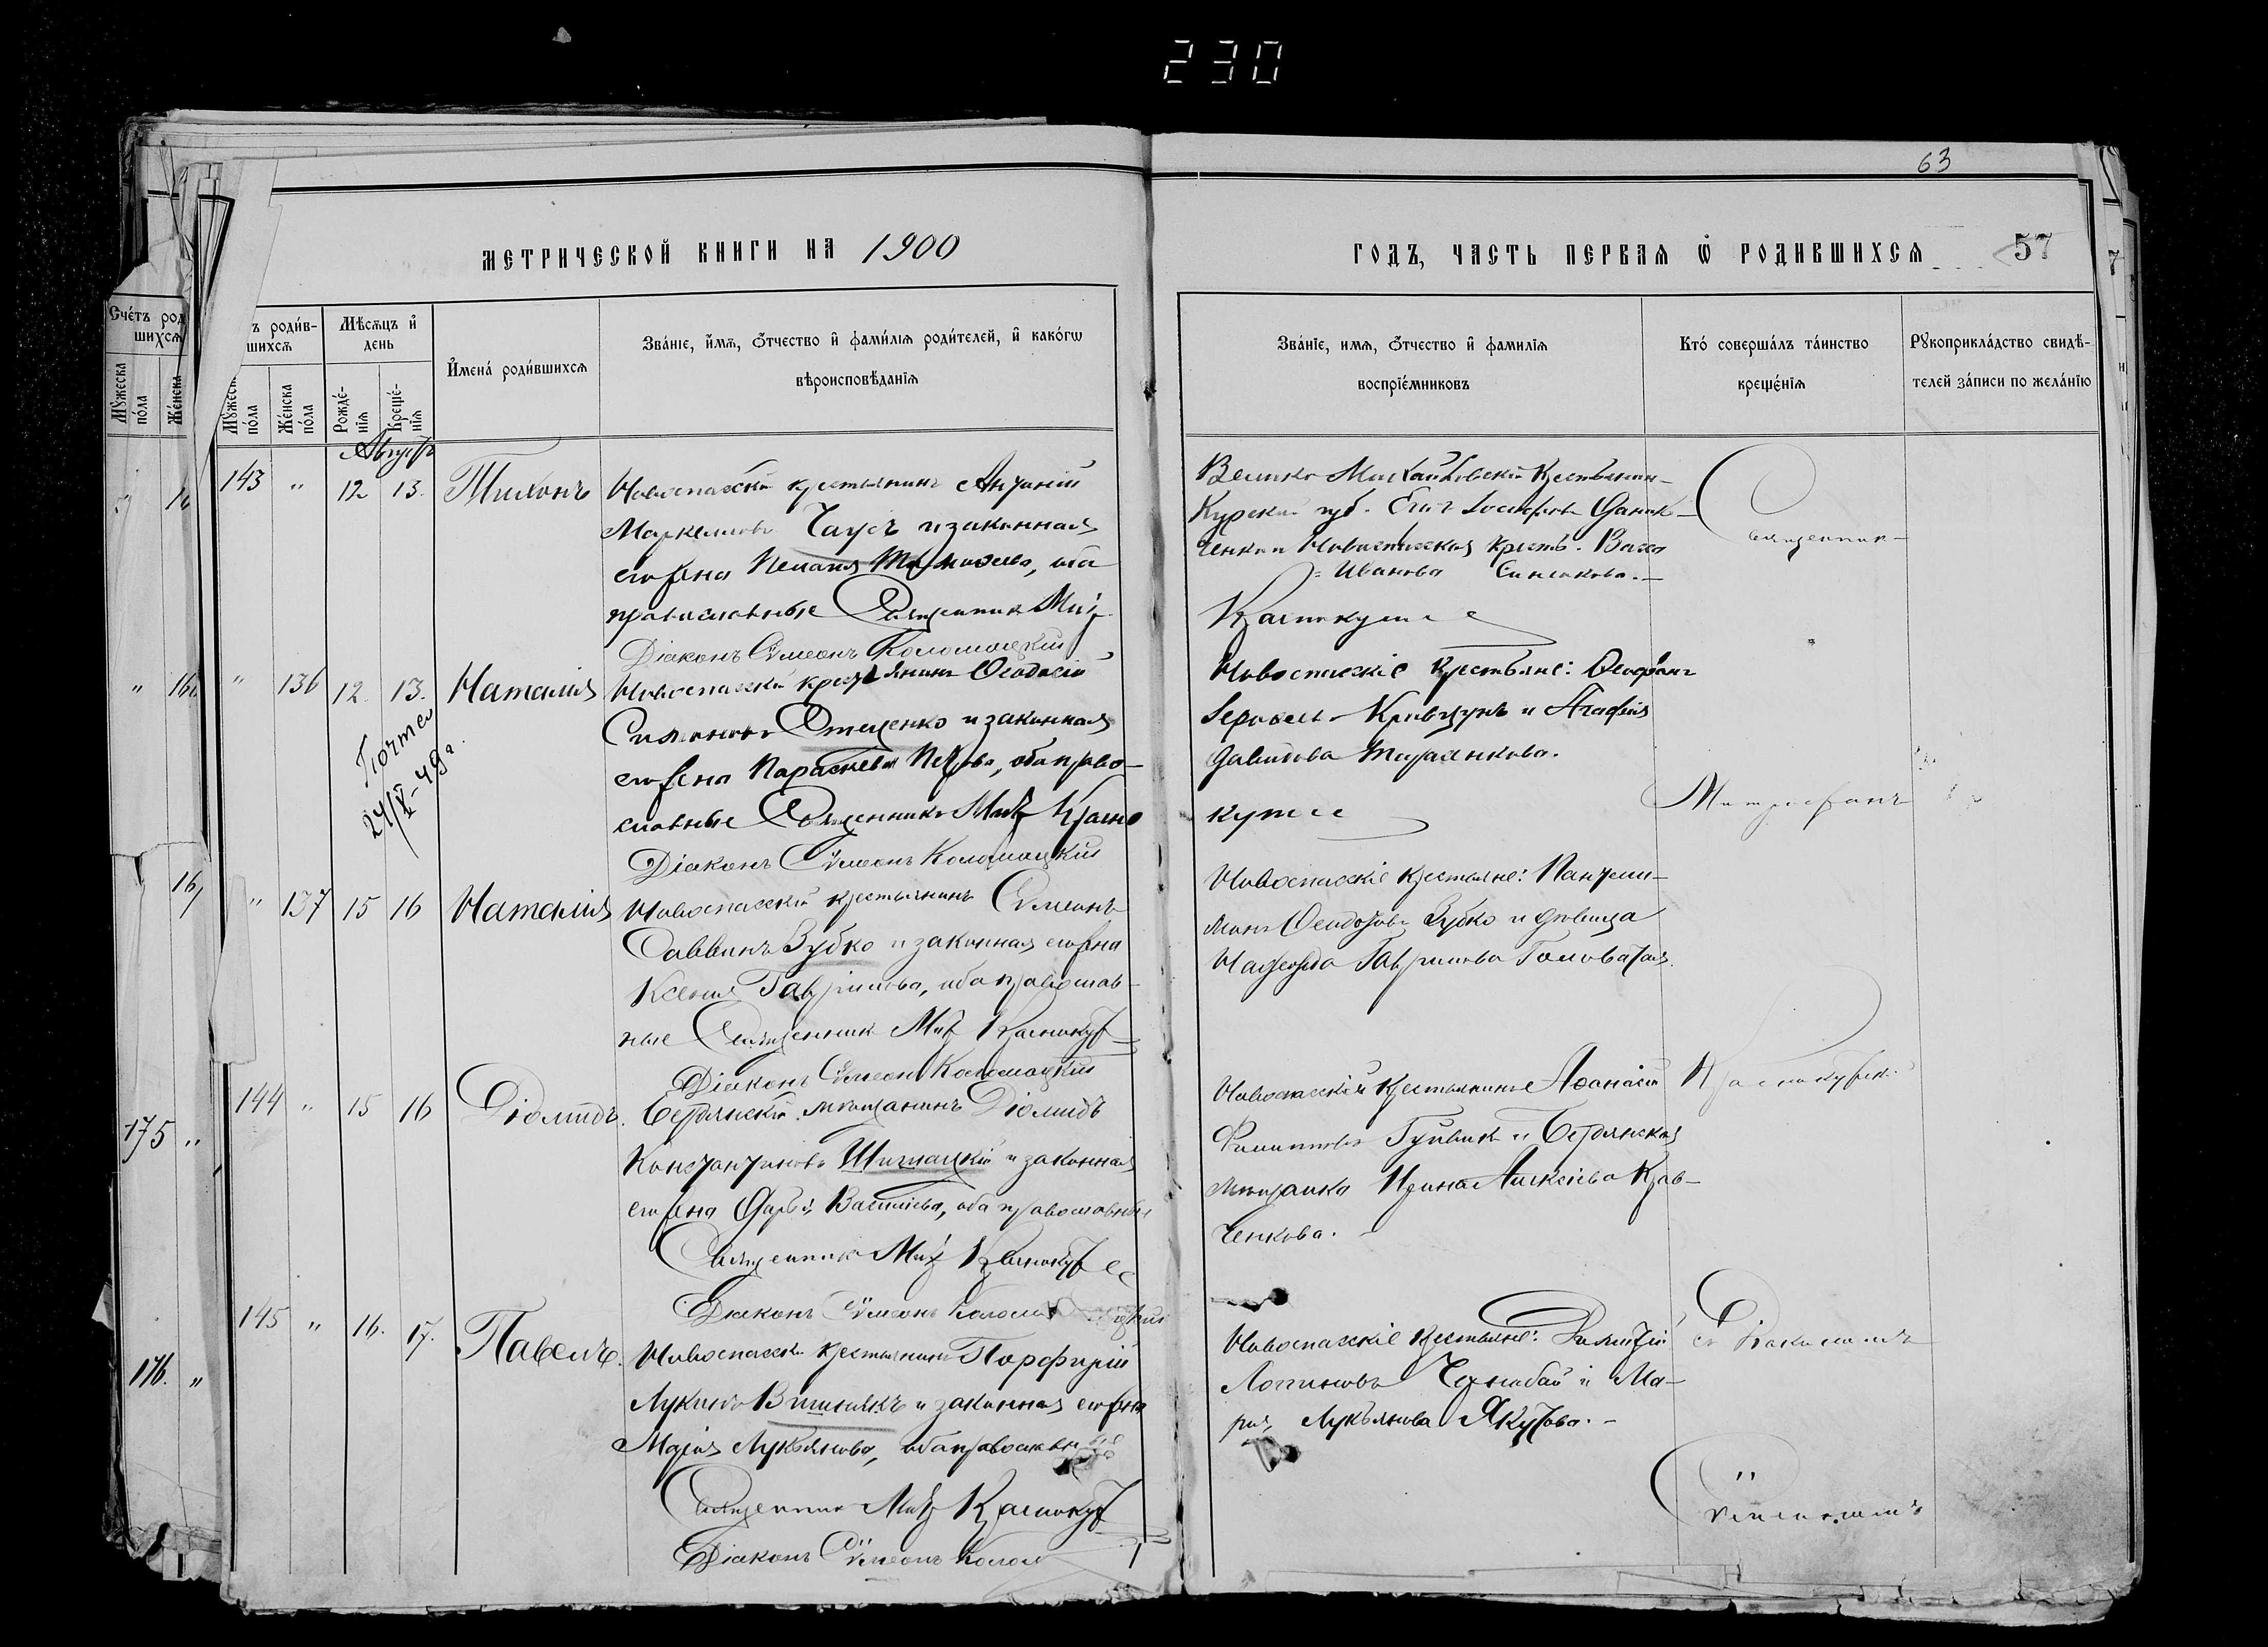 230
63
МЕТРИЧЕСКОЙ КНИГИ НА 1900
ГОДЪ, ЧАСТЬ ПЕРВАЯ Ѡ РОДИВШИХСЯ 57
Счéтъ род
шихся
Мꙋжеска пóла
Жéнска
ъ роди́в-
шихсѧ
Мꙋжеск пóла
Жéнска пóла
Мѣсѧцъ и҆ день
Рождé-
нїѧ
Крещé-
нїѧ
И҆менà роди́вшихсѧ
Звáнїе, и҆́мѧ, ѻ҆́тчество и҆ фами́лїѧ роди́телей, и҆ какóгѡ
вѣроисповѣ́данїѧ
Звáнїе, имѧ, ѻ҆́тчество и҆ фамилїѧ
воспрїéмниковъ
Ктó совершáлъ тáинство
крещéнїѧ
Рꙋкоприклáдство свидѣ́-
телей зáписи по желáнїю
Августъ
143 " 12 13. Тихонъ
Новоспасскій крестьянинъ Антоній
Маркелловъ Чаусъ и законная
его жена Пелагія Тимофеева, оба
православные Священникъ Мит
Діаконъ Сѵмеонъ Коломацкій
Велико Михайловскій крестьянинъ
Курской губ.
ченко и Новоспасская крест.
Иванова
Краснокутс
Священник
" 136 12. 13. Наталія
Новоспасскій крестьянинъ Ѳеодосій
Стеценко и законная
его жена Параскева Петрова, оба право-
славные Священникъ Мит Красно
Діаконъ Сѵмеонъ Коломацкій
24/V-49г.
Новоспасскіе крестьяне: Ѳеофанъ
Кривцунъ и Агафія
Давидова
кутс
Митрофанъ
" 137 15 16 Наталія
Новоспасскій крестьянинъ Сѵмеонъ
Саввинъ Зубко и законная его жена
Ксенія Гаврилова, оба православ-
ные Священник Мит Краснокут
Діаконъ Сѵмеонъ Коломацкій
Новоспасскіе крестьяне: Пантели-
монъ Ѳеодотовъ Зубко и дѣвица
Надежда Гаврилова Головатая.
144 " 15 16 Діомидъ.
Бердянскій мѣщанинъ Діомидъ
Константиновъ Шишацкій и законная
его жена Дарья Васильева, оба православные
Священникъ Мит Краснокут
Діаконъ Сѵмеонъ Коломацкій
Новоспасскій крестьянинъ Аѳанасій
Филипповъ и Бердянская
мѣщанка Ирина Алексѣева Крав-
ченкова.
Краснокутск.
145 " 16. 17. Павелъ.
Новоспасскій крестьянинъ Порфирій
Лукинъ Вишнякъ и законная его жена
Марія Лукьянова, оба православные
Священник Мит Краснокут
Діаконъ Сѵмеонъ Колом
Новоспасскіе крестьяне:
Логиновъ Чернобай и Ма-
рія Лукьянова Якутова.
съ Діакономъ
"
175 "
176. "